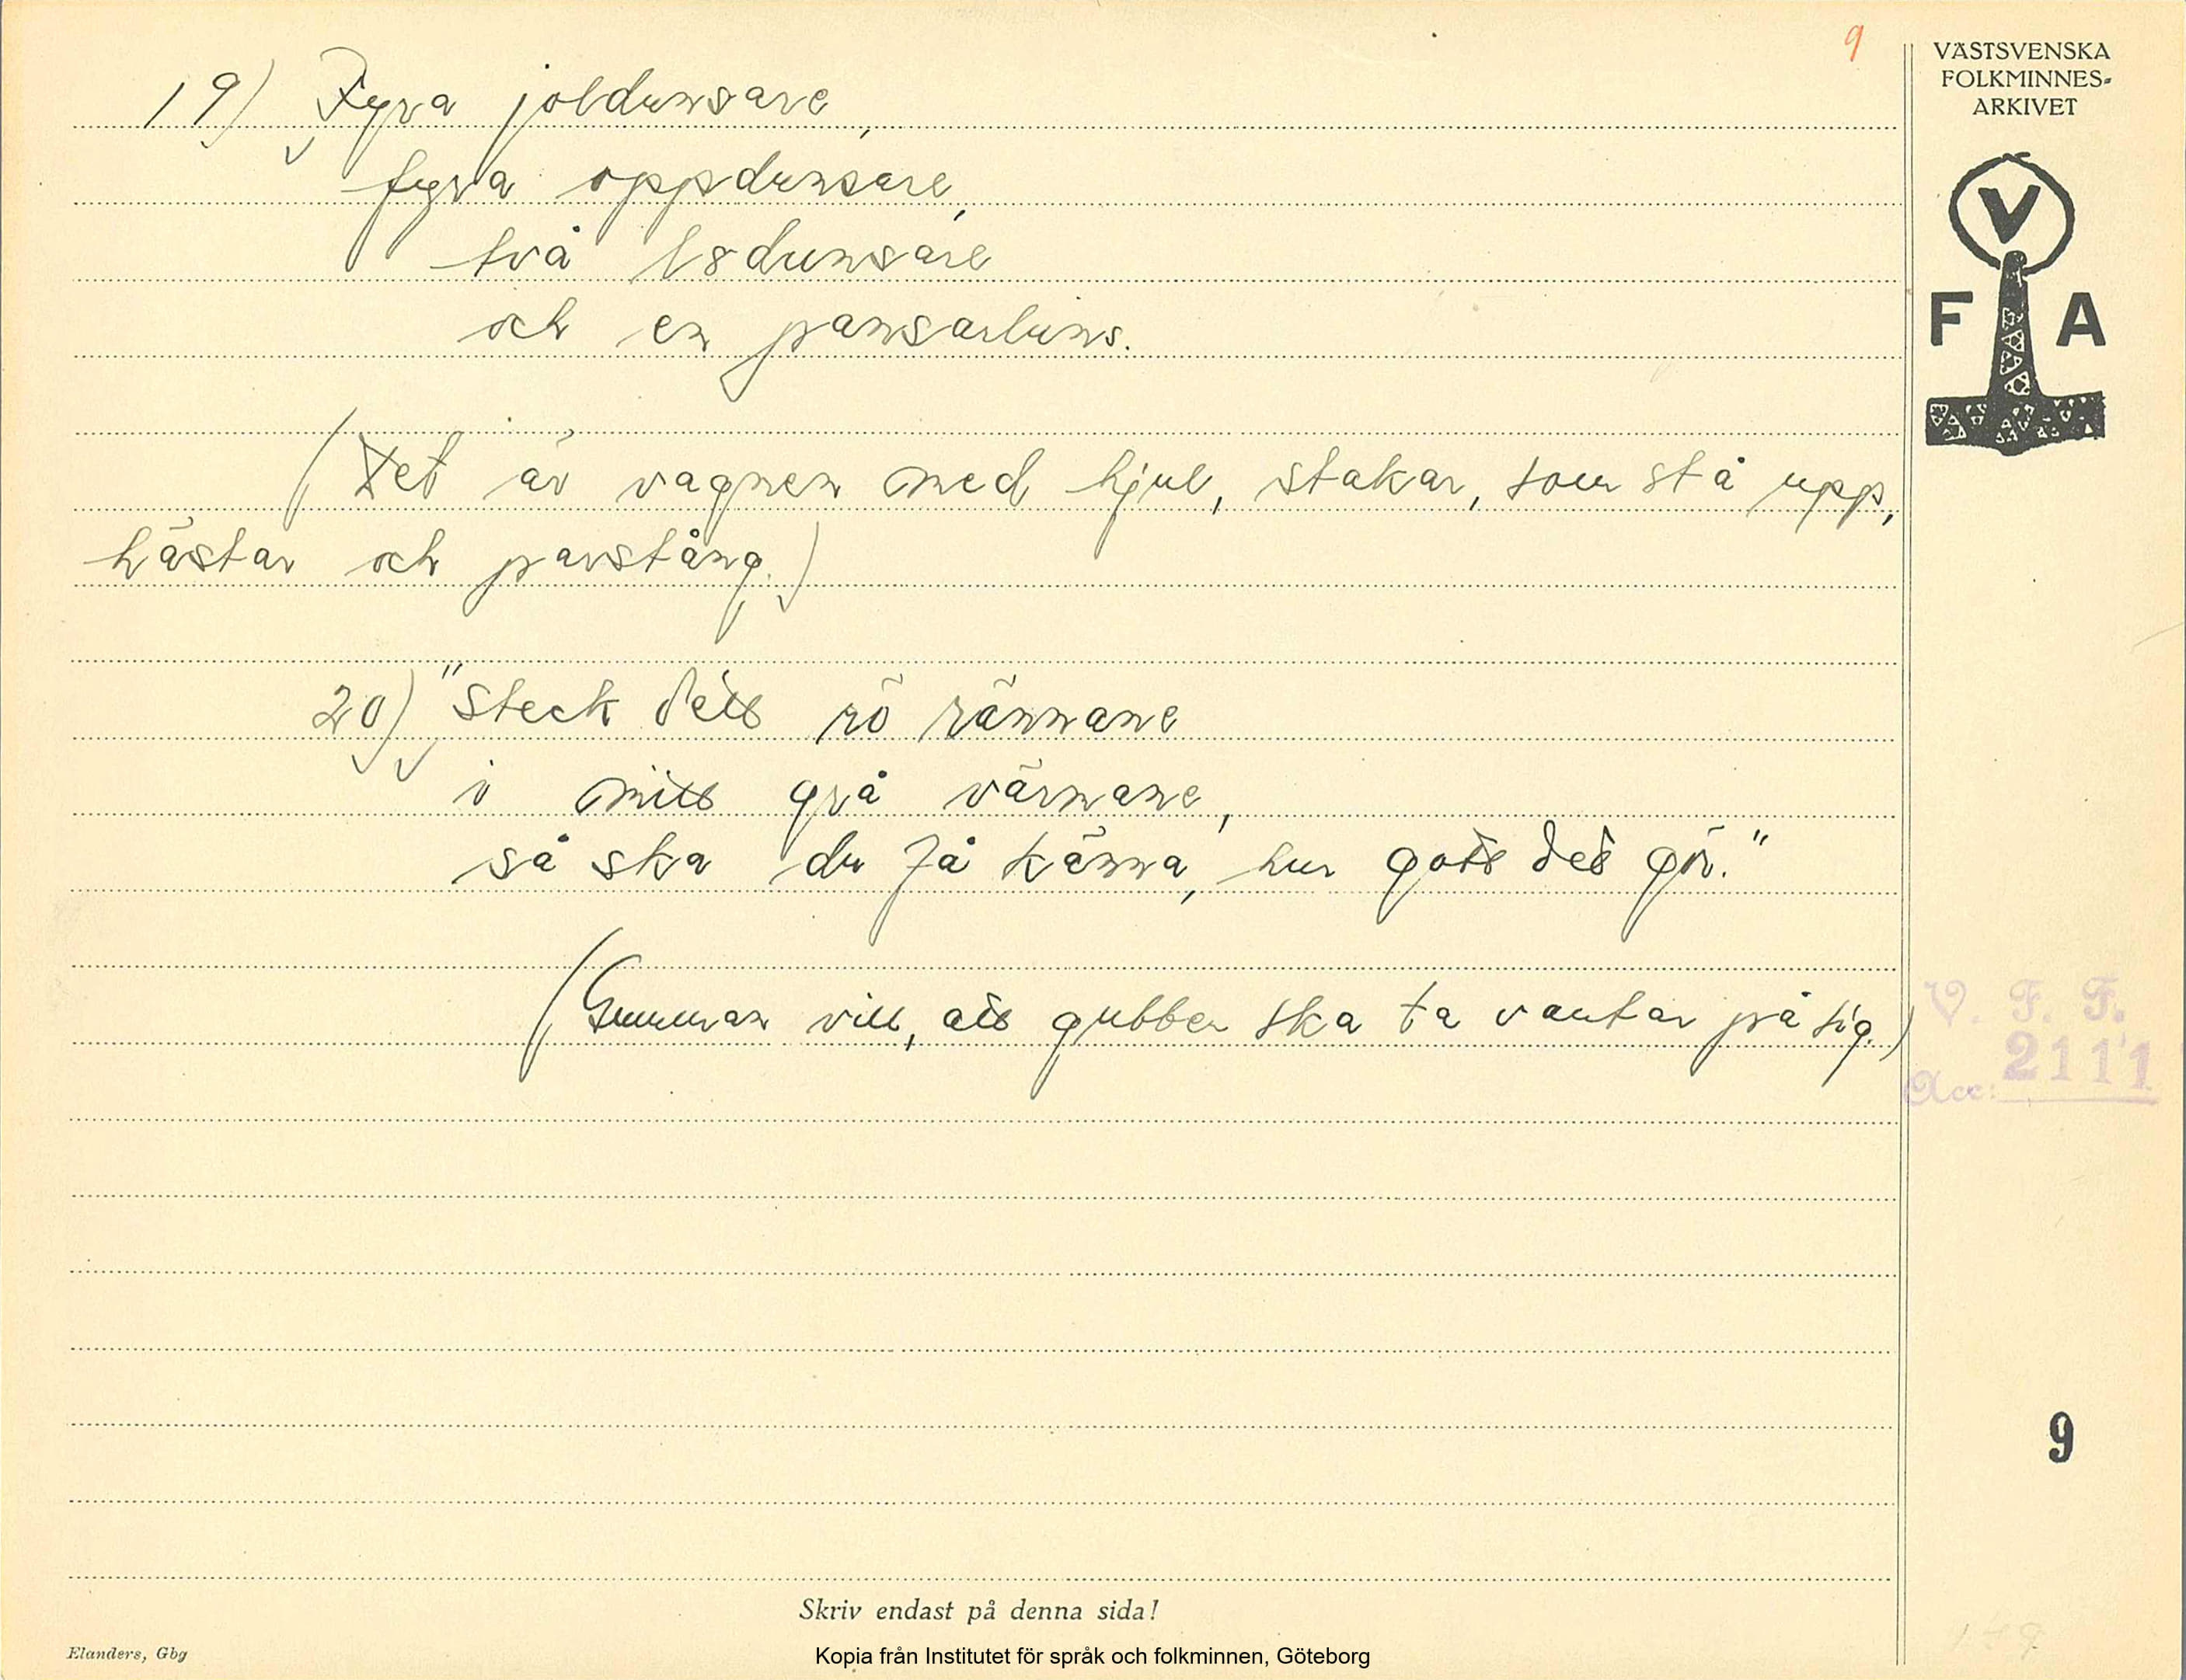 9
VÄSTSVENSKA
FOLKMINNES-
ARKIVET
V
F A
19) Fyra joldunsare,
fyra oppdunsare,
två lsdunsare
och en pansarluns.
(Det är vagnen med hjul, stakar, som stå upp,
hästar och parstång.)
20) "Steck ditt rö rännane
i mitt grå värnane,
så ska du få känna, hur gott det gör."
(Gumman vill, att gubben ska ta vantar på sig.)
V. F. F.
Acc: 2111
9
Skriv endast på denna sida!
Elanders, Gbg
Kopia från Institutet för språk och folkminnen, Göteborg